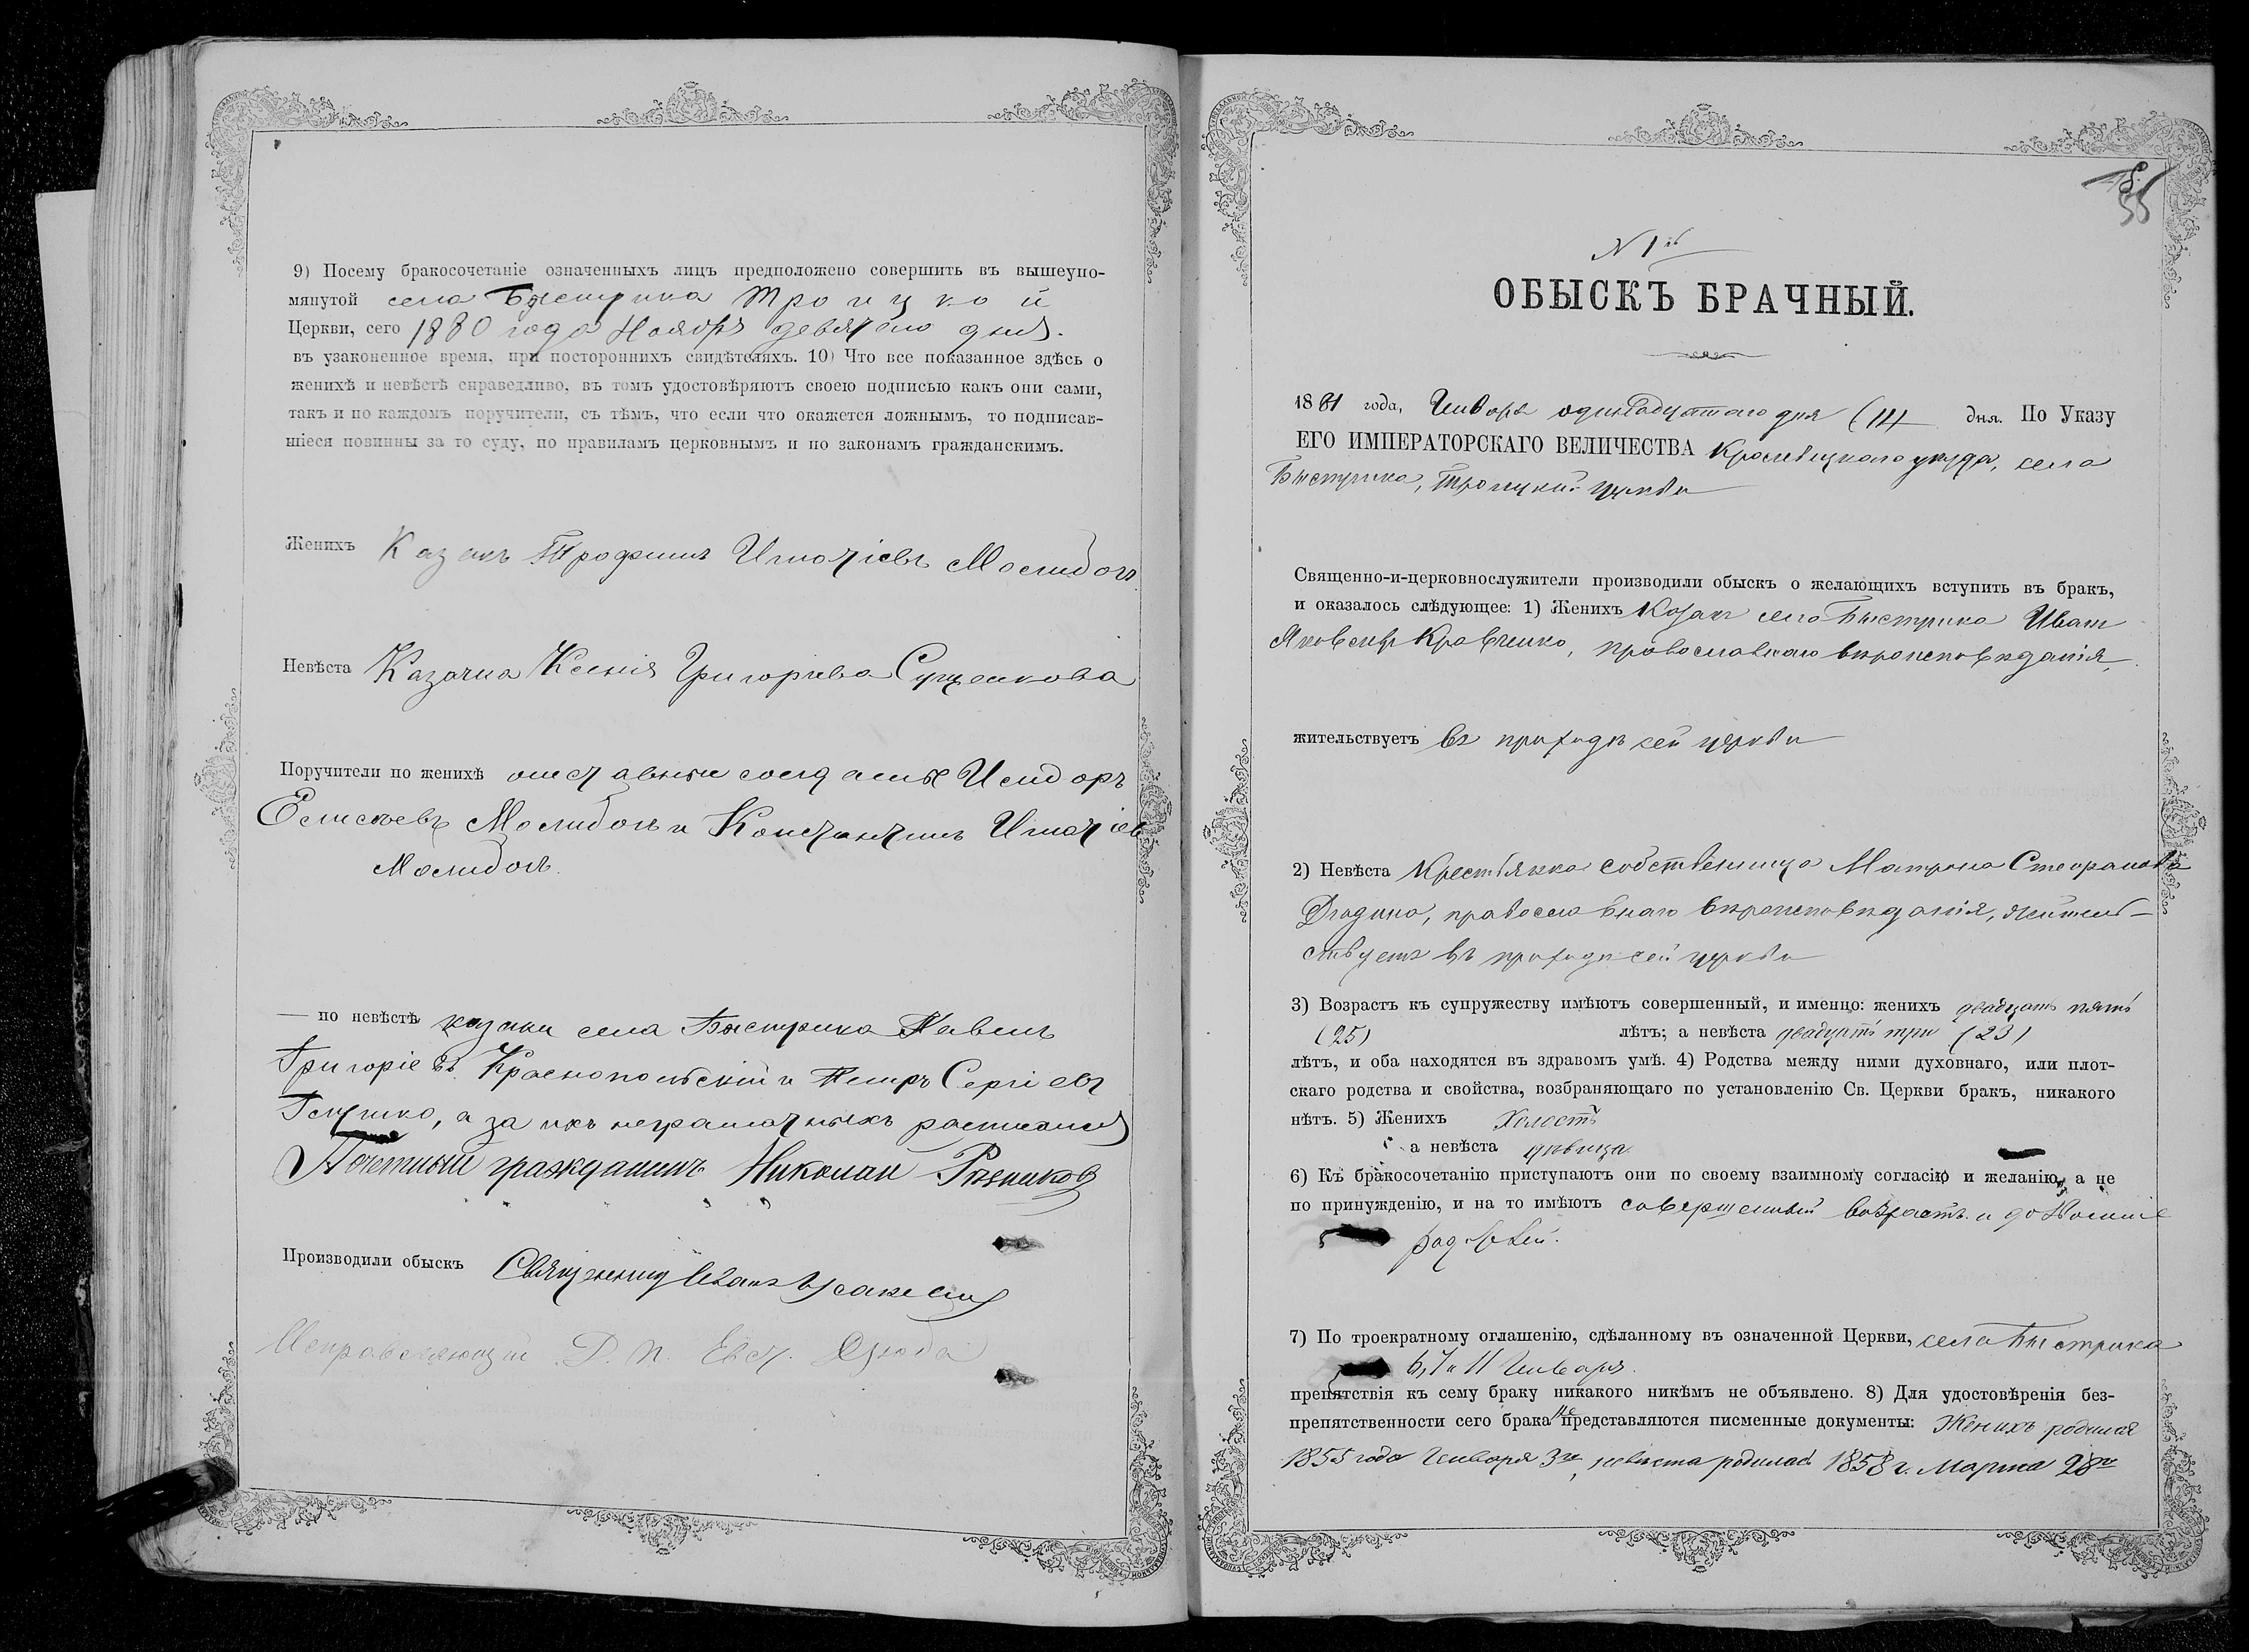 9) Посему бракосочетаніе означенныхъ лицъ предположено совершить въ вышеупо-
мянутой села Быстрика Троицкой
Церкви, сего 1880 года Ноября девятаго дня.
въ узаконенное время, при постороннихъ свидѣтеляхъ. 10) Что все показанное здѣсь о
женихѣ и невѣстѣ справедливо, въ томъ удостовѣряютъ своею подписью какъ они сами,
такъ и по каждомъ поручители, съ тѣмъ, что если что окажется ложнымъ, то подписав-
шіеся повинны за то суду, по правиламъ церковнымъ и по законамъ гражданскимъ.
Женихъ Казакъ Трофимъ Игнатіевъ
Невѣста Казачка Ксенія Григоріева Сущенкова
Поручители по женихѣ отставные солдаты Исидоръ
Елисѣевъ и Константинъ Игнатіев
— по невѣстѣ казаки села Быстрика Павелъ
Григоріевъ Краснопольскій и Петръ Сергіевъ
а за ихъ неграматныхъ росписался
Почетный гражданинъ Николай Рѣзников
Производили обыскъ Священникъ Іоанъ
Исправляющій Д. П. Евст. Дзюба
55
N 1й
ОБЫСКЪ БРАЧНЫЙ.
1881 года, Января одинадцатаго дня (11) дня. По Указу
ЕГО ИМПЕРАТОРСКАГО ВЕЛИЧЕСТВА Кролевецкаго уѣзда, села
Быстрика, Троицкой церкви
Священно-и-церковнослужители производили обыскъ о желающихъ вступить въ бракъ,
и оказалось слѣдующее: 1) Женихъ Козакъ села Быстрика Иванъ
Яковлевъ Кравченко, православнаго вѣроисповѣданія,
жительствуетъ въ приходѣ сей церкви
2) Невѣста Крестьянка собственница Матрона Стефанова
православнаго вѣроисповѣданія, житель-
ствуетъ въ приходѣ сей церкви
3) Возрастъ къ супружеству имѣютъ совершенный, и именно: женихъ двадцать пять
(25) лѣтъ; а невѣста двадцать три (23)
лѣтъ, и оба находятся въ здравомъ умѣ. 4) Родства между ними духовнаго, или плот-
скаго родства и свойства, возбраняющаго по установленію Св. Церкви бракъ, никакого
нѣтъ. 5) Женихъ Холостъ
а невѣста дѣвица
6) Къ бракосочетанію приступаютъ они по своему взаимному согласію и желанію, а не
по принужденію, и на то имѣютъ совершенный возрастъ и дозволеніе
родителей.
7) По троекратному оглашенію, сдѣланному въ означенной Церкви, села Быстрика
6, 7 и 11 Января.
препятствія къ сему браку никакого никѣмъ не объявлено. 8) Для удостовѣренія без-
препятственности сего брака не представляются писменные документы: Женихъ родился
1855 года Января 3го, невѣста родилась 1858 г. Марта 28го